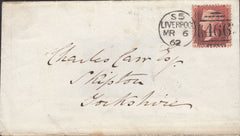 S5
LIVERPOOL
MR 6
62
466
Charles Carr Esq.
Skipton
Yorkshire